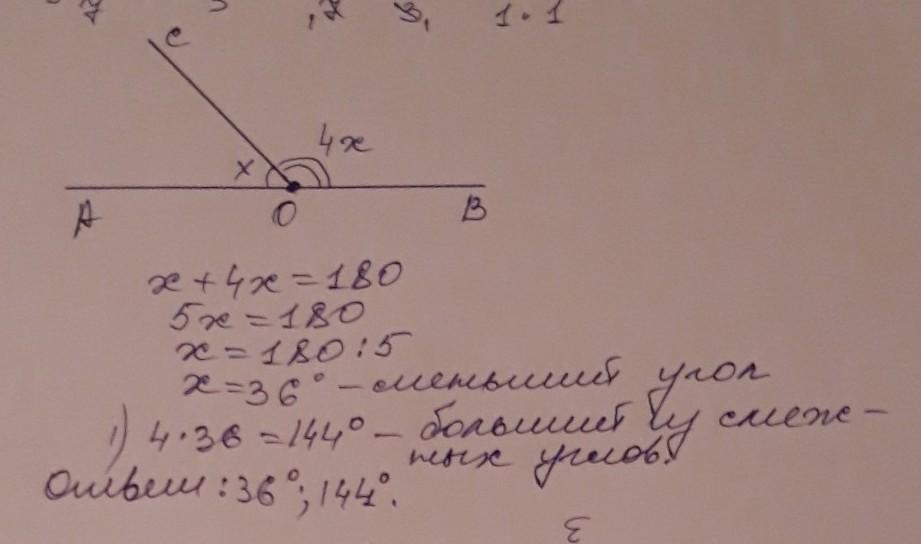 1 · 1
C
x 4x
A O B
x + 4x = 180
5x = 180
x = 180 : 5
x = 36° – меньший угол
1) 4 · 36 = 144° – больший из смеж-
ных углов.
Ответ: 36°; 144°.